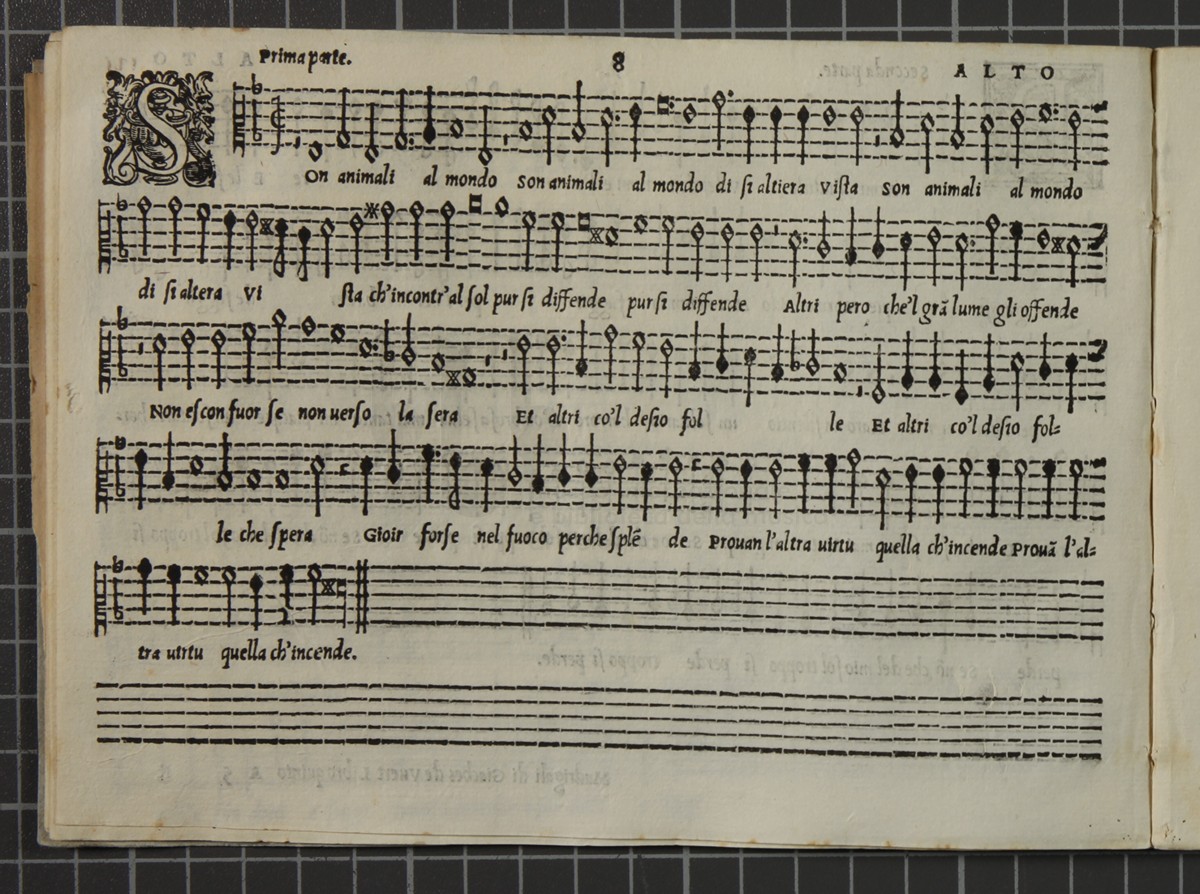 Prima parte.
8
ALTO
SOn animali al mondo son animali al mondo di si altiera vista son animali al mondo
di si altera vi sta ch'incontr'al sol pur si diffende pur si diffende Altri pero che'l grā lume gli offende
Non escon fuor se non uerso la sera Et altri co'l desio fol le Et altri co'l desio fol=
le che spera Gioir forse nel fuoco perche splē de Prouan l'altra uirtu quella ch'incende Prouā l'al=
tra uirtu quella ch'incende.